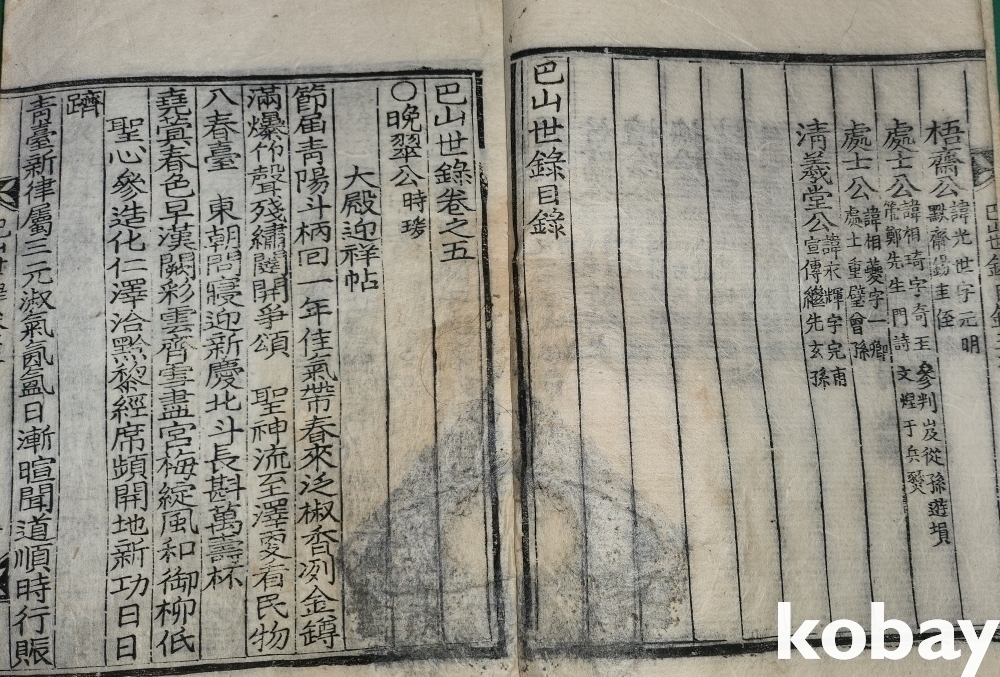 梧齋公 諱光世字元明
默齋錫圭侄
處士公 諱相琦字奇玉 參判岌從孫遊塤
篪鄭先生門詩文煋于兵燹
處士公 諱相夔字一卿
處士重璧曾孫
淸羲堂公 諱衣輝字完甫
宣傳繼先玄孫
巴山世錄目錄
巴山世錄卷之五
○晚翠公 時琇
大殿迎祥帖
節届靑陽斗柄回一年佳氣帶春來泛椒香冽金罇
滿爆竹聲殘繡闥開爭頌 聖神流至澤更看民物
八春臺 東朝問寢迎新慶北斗長斟萬壽杯
堯蓂春色早漢闕彩雲齊雪盡宮梅綻風和御柳低
聖心參造化仁澤洽黔黎經席頻開地新功日日
躋
靑臺新律屬三元淑氣氤氳日漸暄聞道順時行賑
kobay